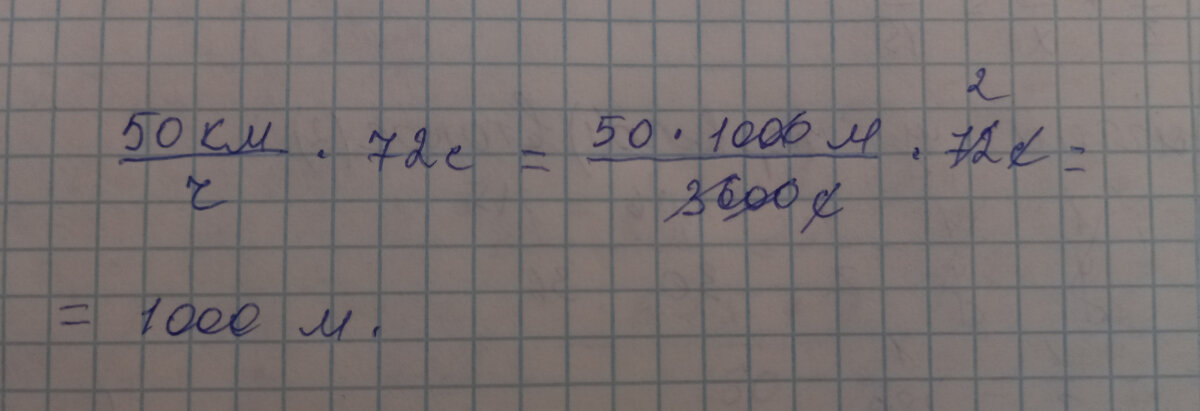 50 км/ч · 72с = 50 · 1000 м/3600 с · 72 с =
2
= 1000 м.